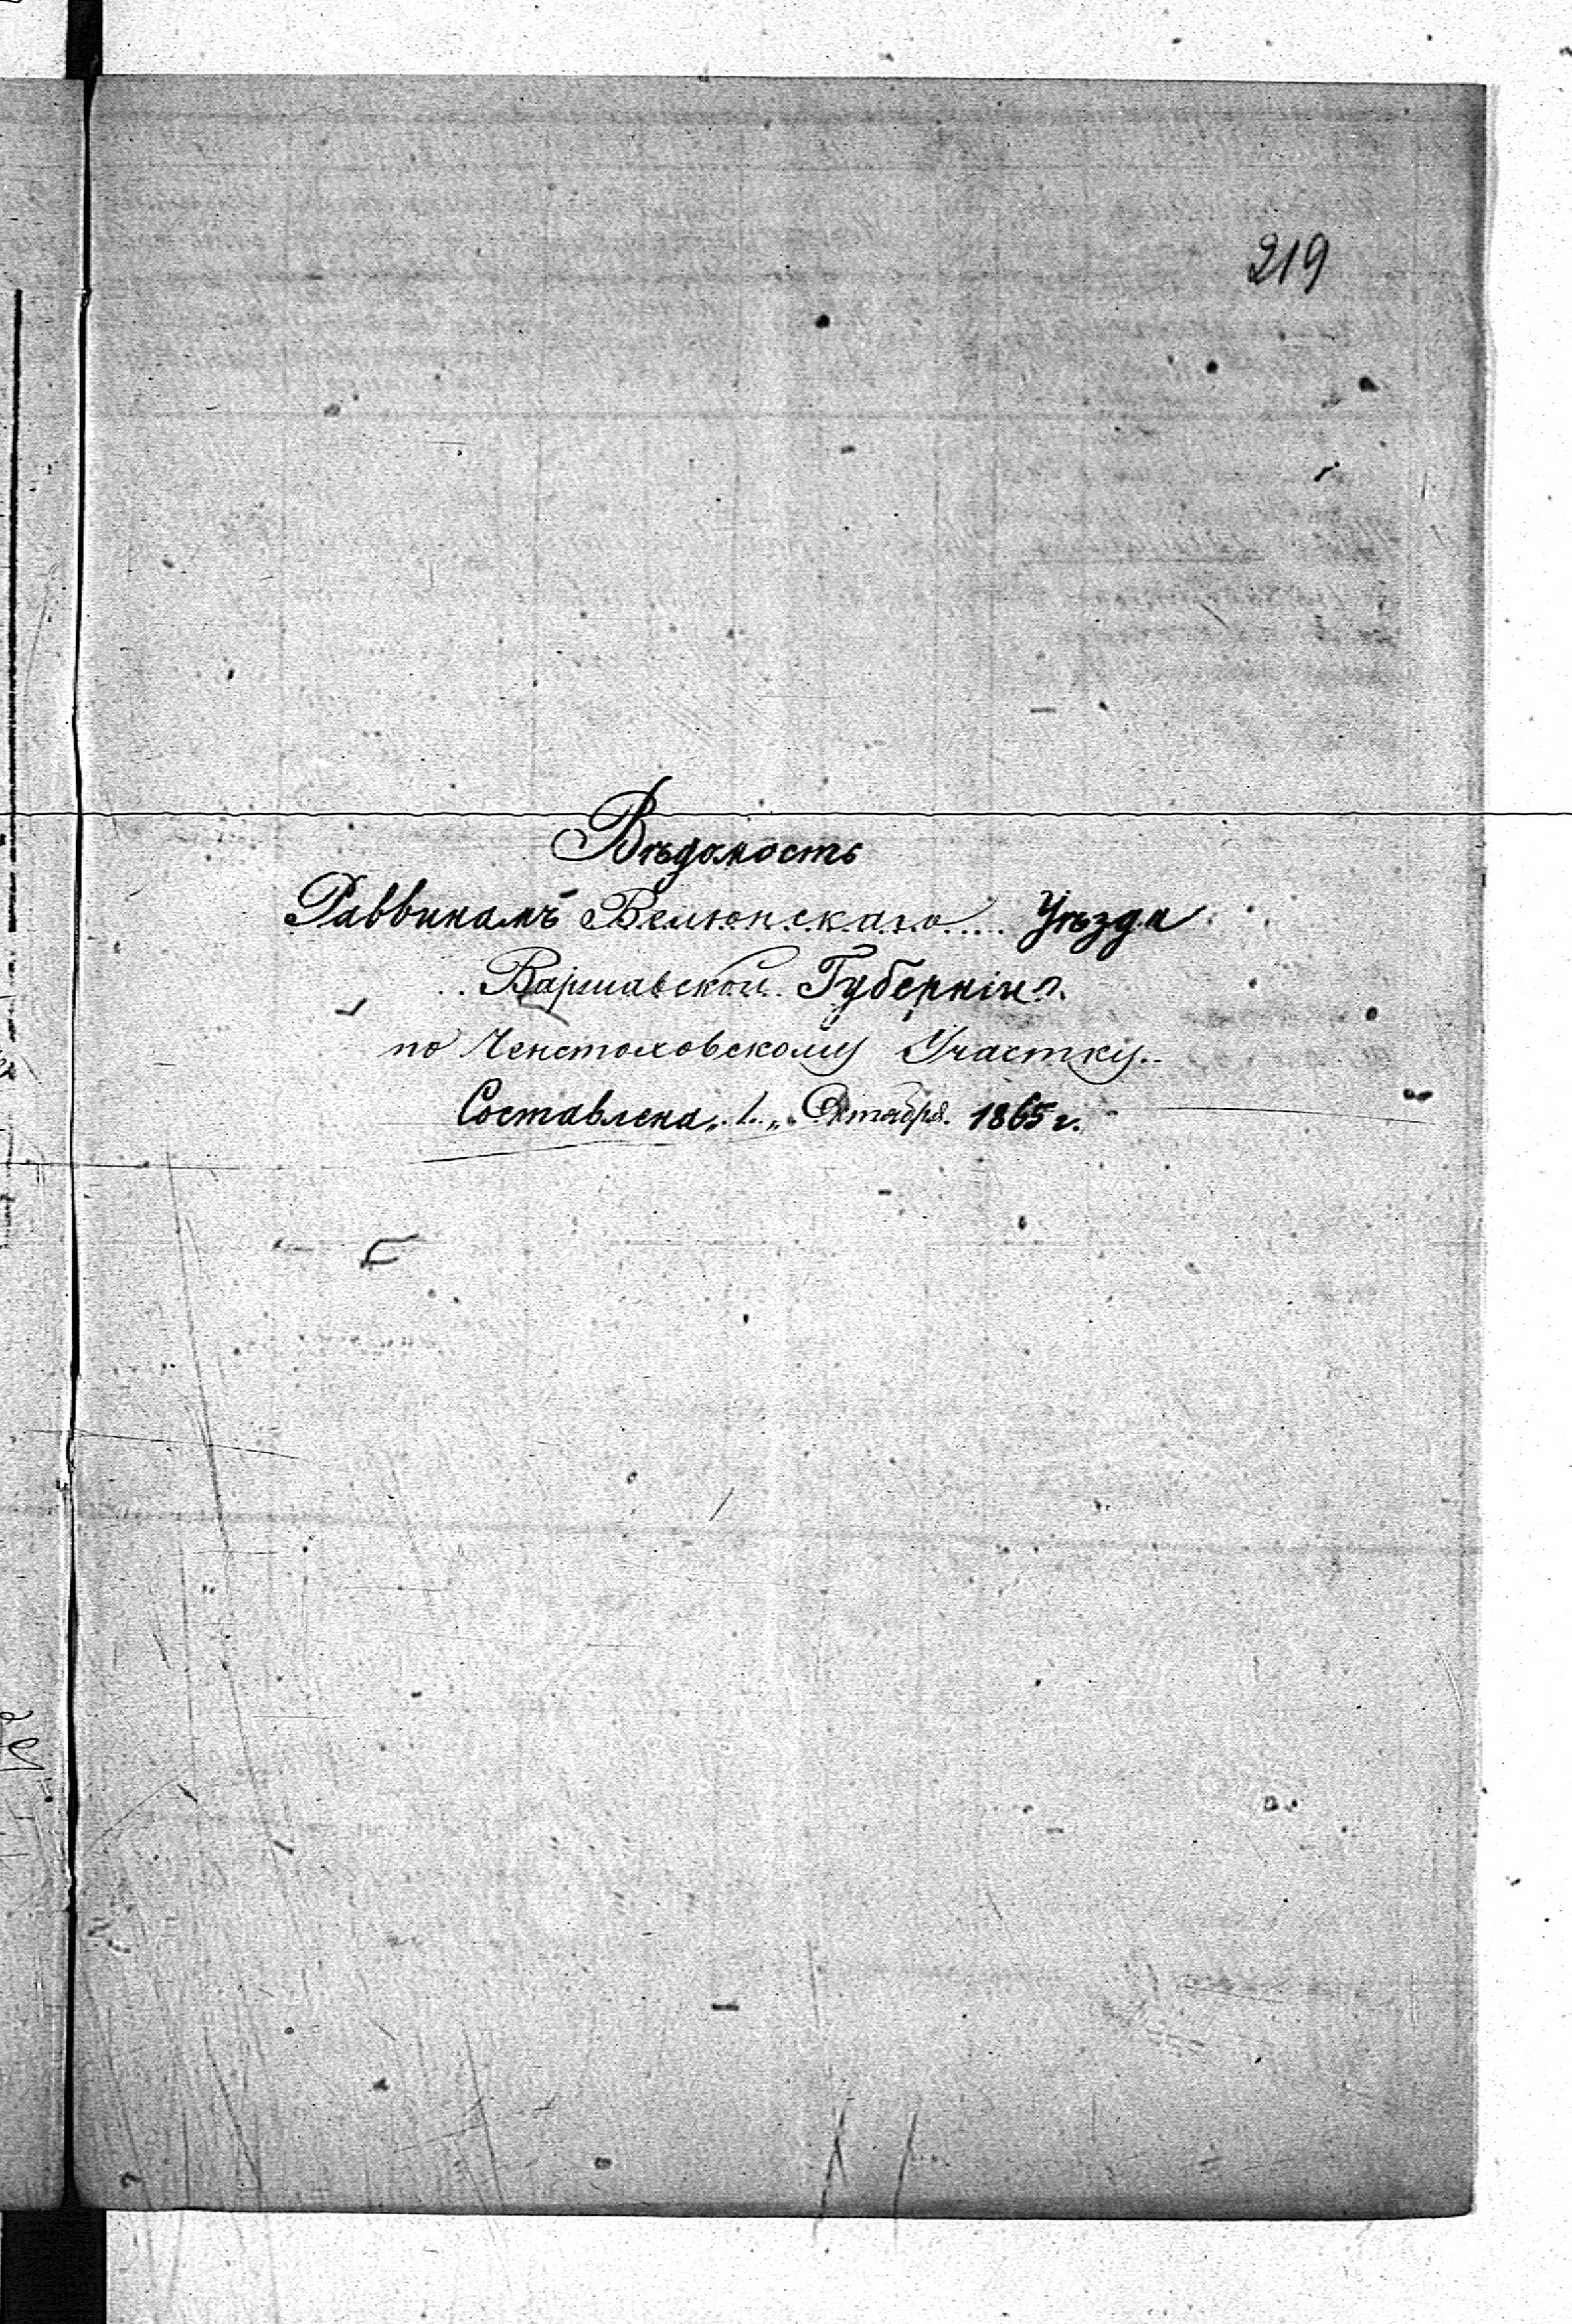 219
Вѣдомость
Раввинамъ Велюнскаго..... Уѣзда
.. Варшавской. Губерніи.
по Ченстоховскому Участку..
Составлена „1„ Октября. 1865 г.